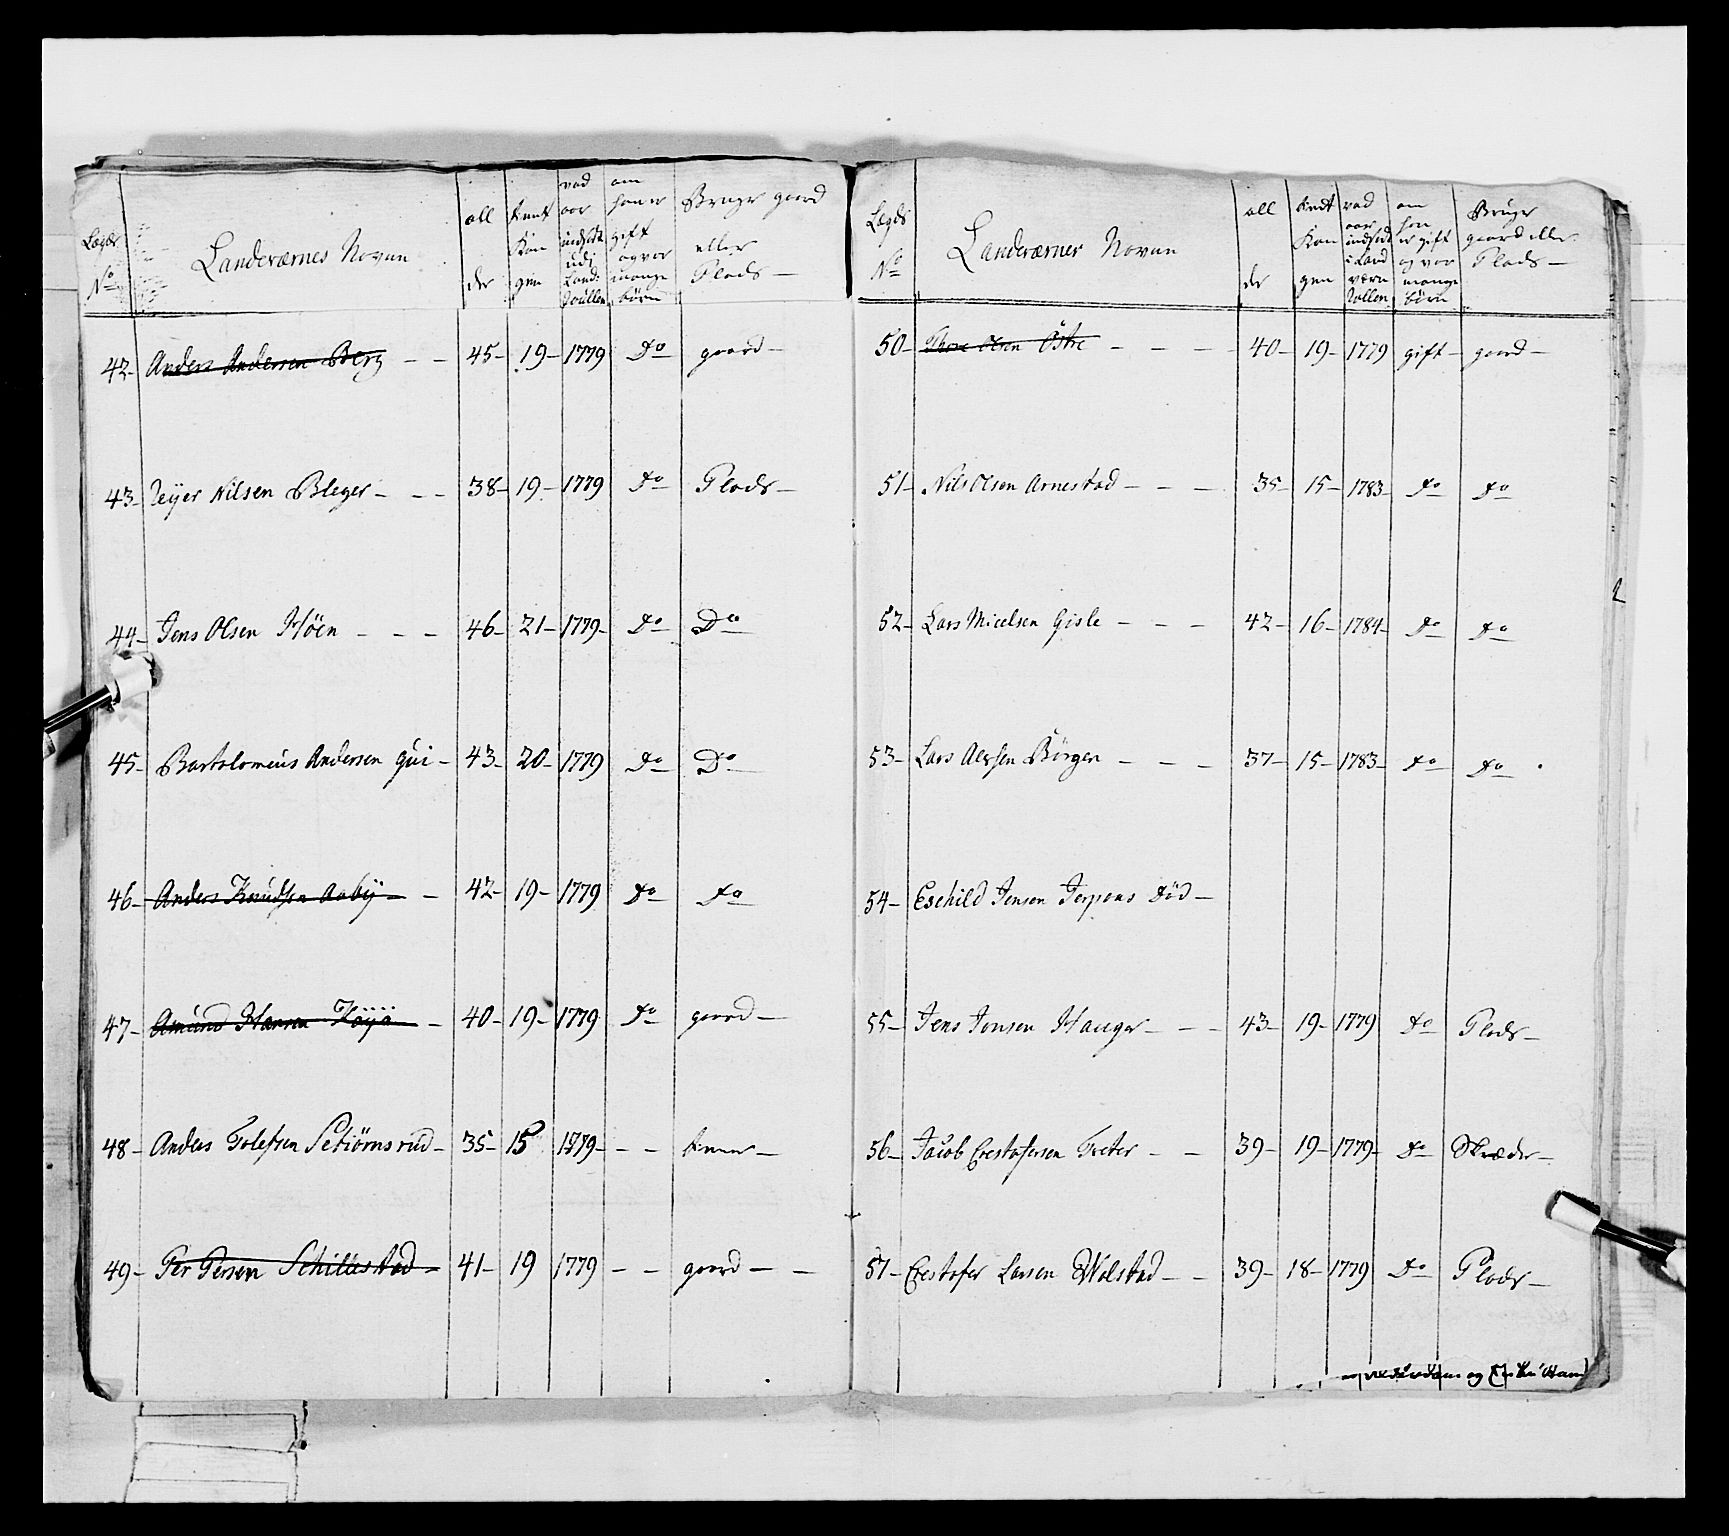 Lægds No
Landeværnes Navnn
all der
tient Kon gen
vad aar indsatt udi Land: Roullen
om han er gift og vor mange börn
Bruger gaard eller Plads —
42- Anders Andersen Berg - - 45- 19- 1779 Do gaard-
43- Reijer Nilsen Bleger - - - 38- 19- 1779 Do Plads-
44- Jens Olsen Höen - - - 46- 21- 1779- Do Do
45- Bartolomeus Andersen Gui- 43- 20- 1779 Do Do
46- Anders Knudsen Aabÿ - - 42- 19- 1779 Do Do
47- Amund Hansen Köÿö - 40- 19- 1779 Do gaard-
48- Anders Tolefsen Setiörnsrud- 35- 15 1779- - -
49- Per Persen Schillestad- 41- 19 1779 - - gaard - -
Lægds No
Landeværnes Navnn
all der
tient Kon gen
vad aar indsadt i Land værn Rollen
om han er gift og vor mange börn
Bruger gaard eller Plads —
50- Thore Olsen Östre - - - - 40- 19- 1779 gift- gaard-
51- Nils Olsen Arnestad - - - 35- 15- 1783- Do Do
52- Lars Micelsen Gisle - - - 42- 16- 1784- Do Do
53- Lars Alefsen Börgen - - - 37- 15- 1783- Do Do
54- Eschild Jensen Jerpaas Död-
55- Jens Jensen Hauger - - - 43- 19- 1779 Do Plads-
56- Jacob Crestofersen Treter - - 39- 19- 1779- Do Skræder-
57- Crestofer Larsen Wolstad - - 39- 18- 1779 Do Plads-
og